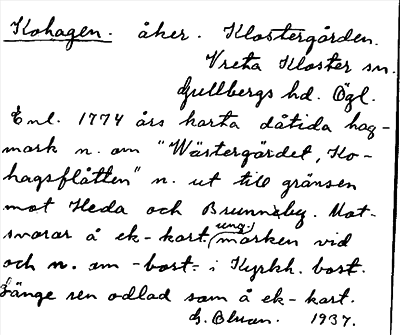 Kohagen. åker. Klostergården.
Vreta Kloster sn.
Gullbergs hd. Ögl.
Enl. 1774 års karta dåtida hag-
mark n. om "Wästergärdet, Ko-
hagsflätten" n. ut till gränsen
mot Heda och Brunneby. Mot-
svarar å ek-kart. (ung.) marken vid
och n. om -bost- i Kyrkh. bost.
Länge sen odlad som å ek-kart.
1937.